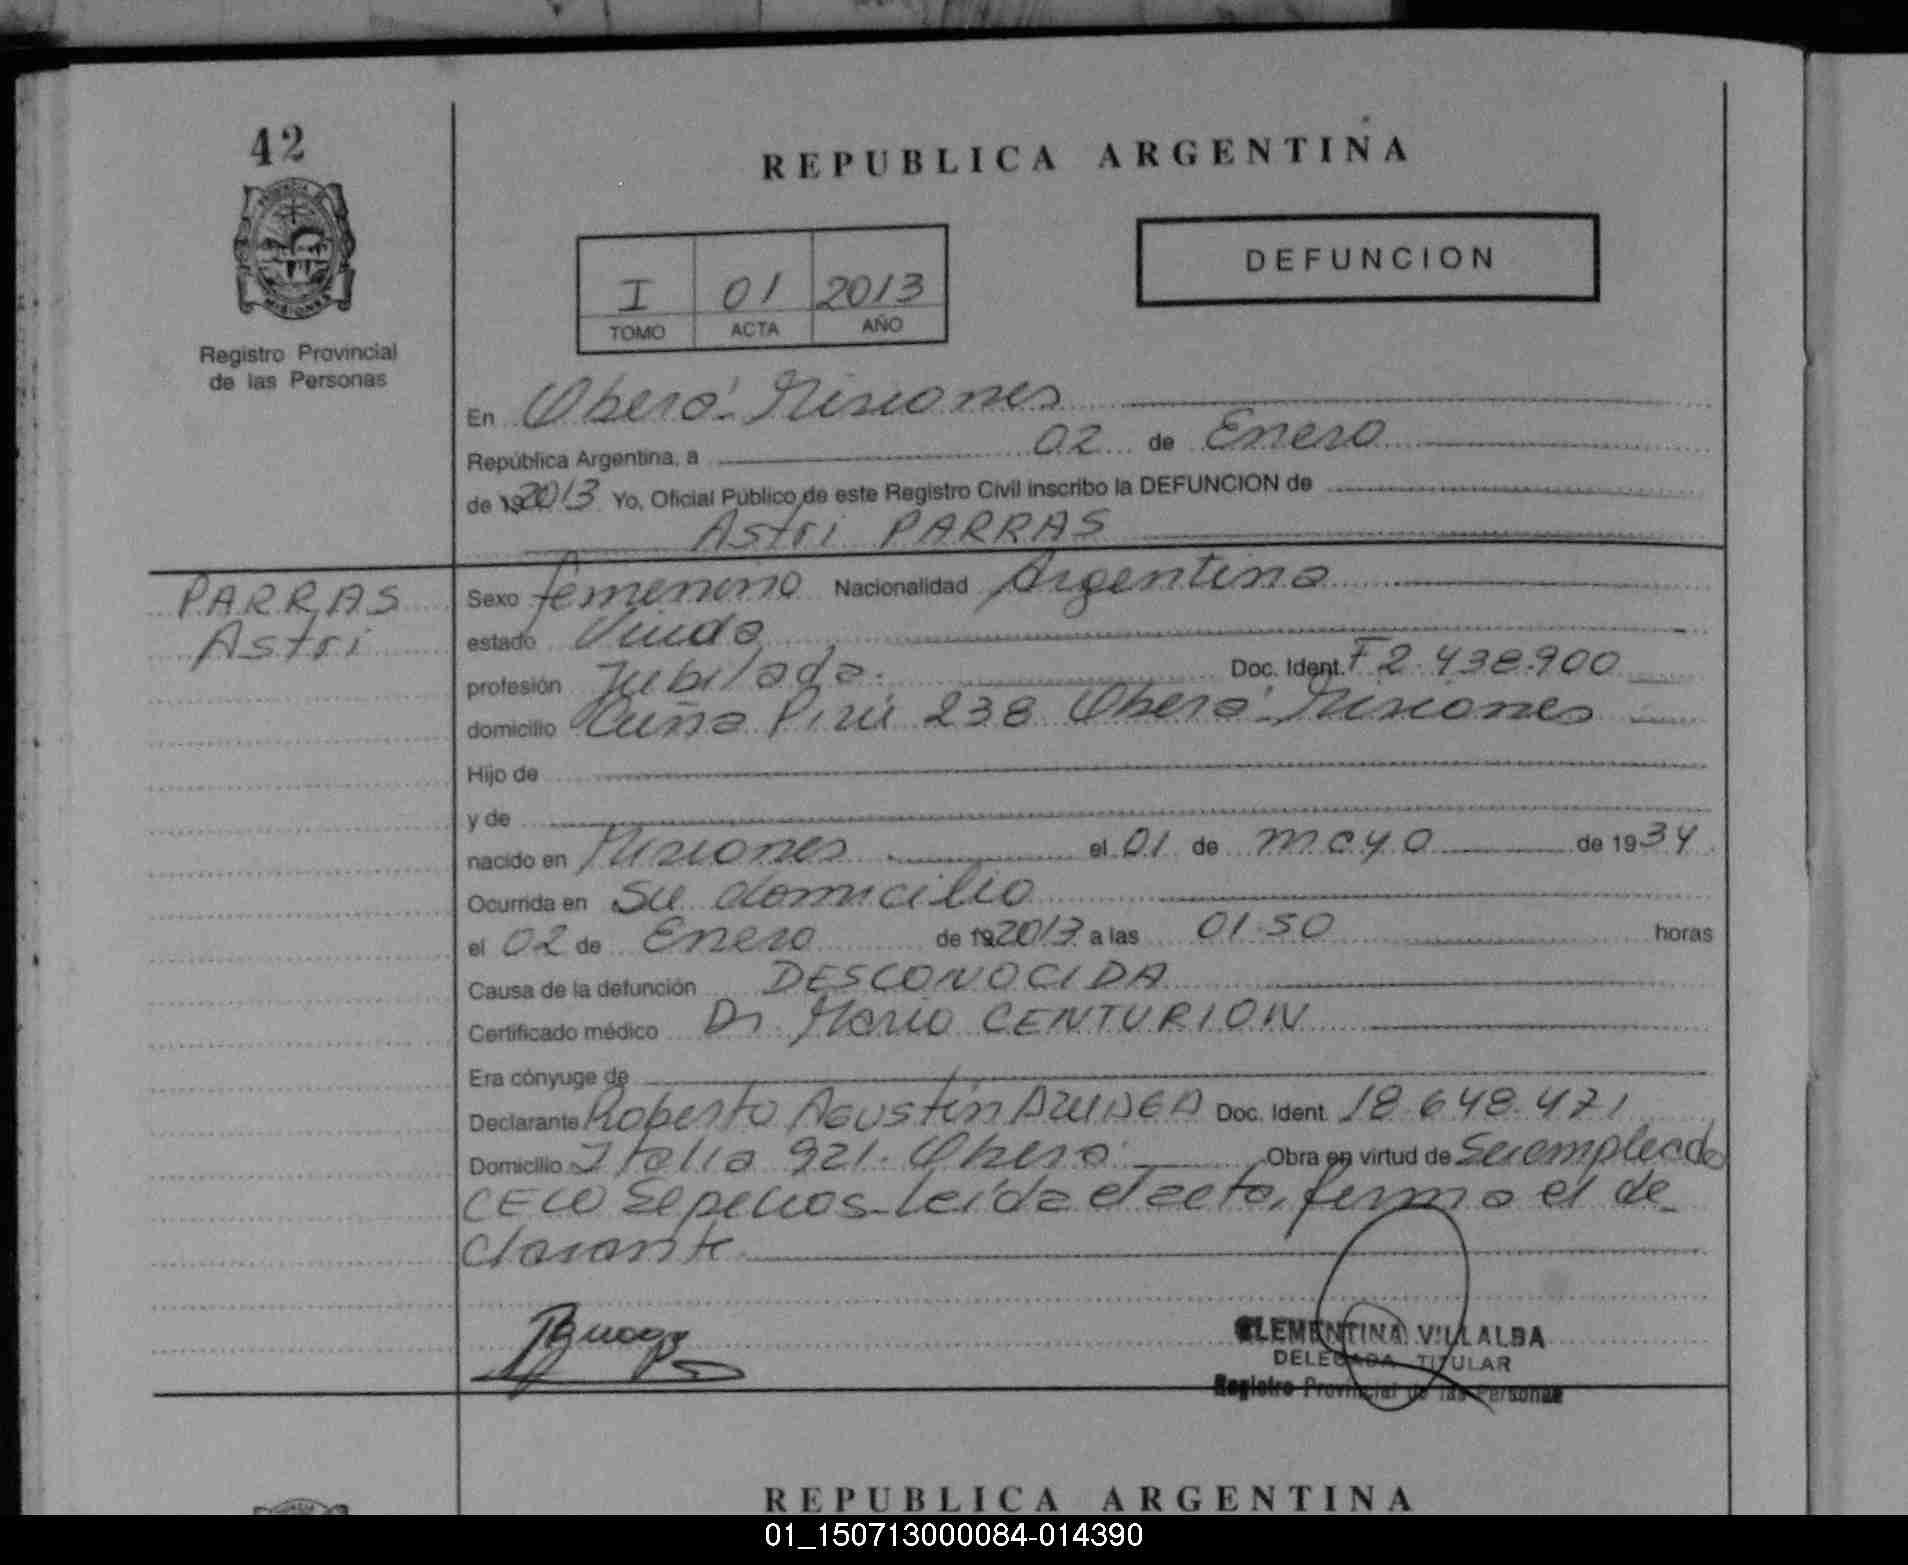 42
REPUBLICA ARGENTINA
DEFUNCION
I 01 2013
TOMO ACTA AÑO
MISIONES
Registro Provincial
de las Personas
En Oberá - Misiones
República Argentina, a 02 de Enero
de 192013 Yo, Oficial Público de este Registro Civil inscribo la DEFUNCION de
Astri PARRAS
PARRAS
Astri
Sexo femenino Nacionalidad Argentina
estado Viuda
profesión Jubilada. Doc. Ident. F 2.438.900
domicilio Cuña Pirú 238 Oberá - Misiones
Hijo de
y de
nacido en Misiones el 01 de mayo de 1934
Ocurrida en Su domicilio
el 02 de Enero de 192013 a las 01.50 horas
Causa de la defunción DESCONOCIDA
Certificado médico Dr. Mario CENTURION
Era cónyuge de
Declarante Roberto Agustín Doc. Ident. 18.648.471
Domicilio Italia 921. Oberá Obra en virtud de Ser empleado
CELO Sepelios - Leída el acta, firma el de-
clarante
CLEMENTINA VILLALBA
DELEGADA TITULAR
Registro Provincial de las Personas
REPUBLICA ARGENTINA
01_150713000084-014390